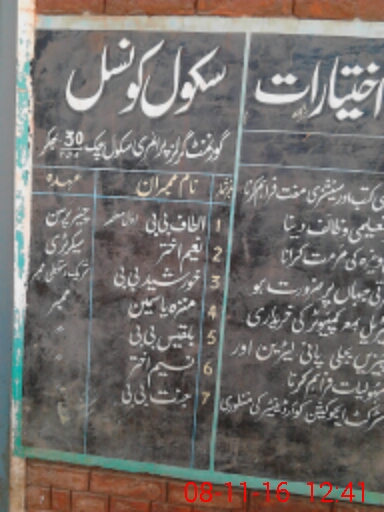 اختیارات
سکول کونسل
گورنمنٹ گرلز پرائمری سکول چک 30 بھکر
نمبر شمار نام ممبران عہدہ
1 الطاف بی بی چیئر پرسن
2 نعیم اختر سیکرٹری
3 خورشید بی بی
4 منزہ یاسمین ممبر
5 بلقیس بی بی "
6 نسیم اختر "
7 جنت بی بی "
کتب اور سٹیشنری مفت فراہم کرنا
تعلیمی وظائف دینا
وغیرہ کی مرمت کرانا
جہاں پر ضرورت ہو
کمپیوٹر کی خریداری
بجلی پانی لیٹرین اور
سہولیات فراہم کرنا
ایجوکیشن کی منظوری
08-11-16 12:41